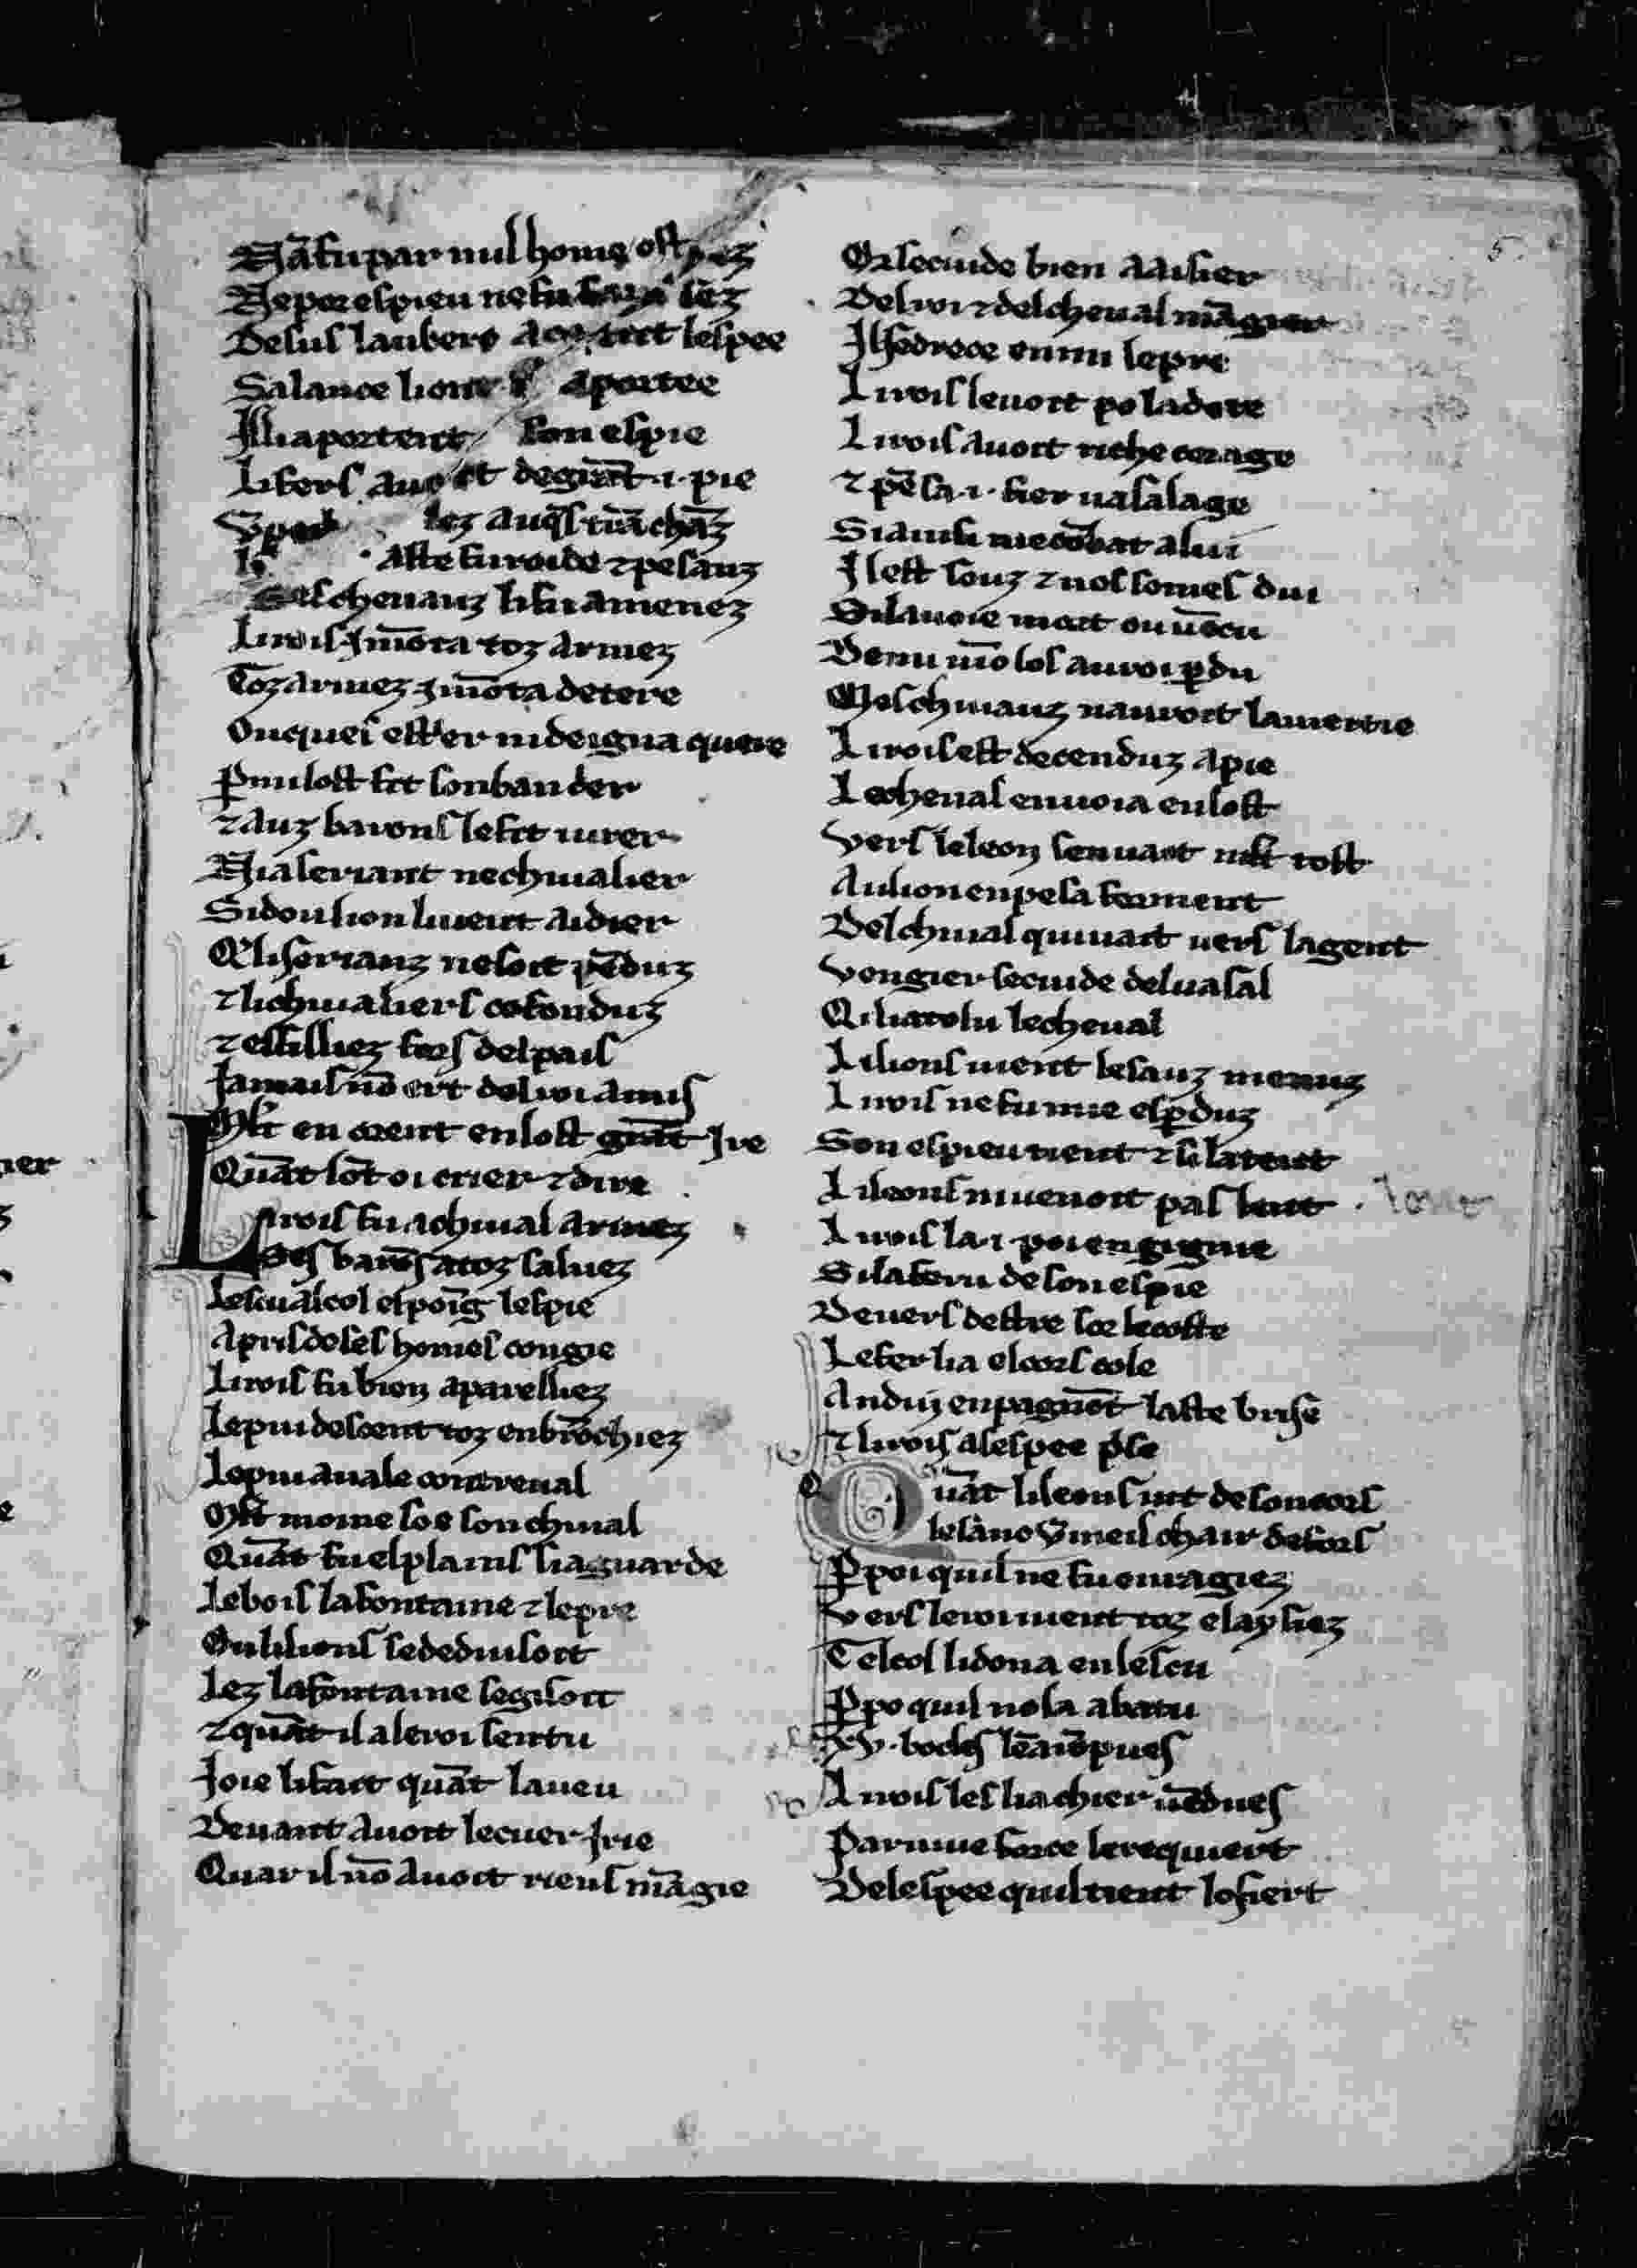 Nā fu par nul home
Ne por espieu ne fu
Desus lauberc a cest lespee
Sa lance li aportee
Il li aportent son espie
Li fers avoit de grāt .i. pie
lez au q̄l trāchāz
aste fu roide ⁊ pesanz
Ses chevauz li fu amenez
Li rois i mōta toz armez
Toz armez i mōta de tere
Onques estrer ni deigna quere
P̱mi lost fet son ban cier
⁊ auz barons le fet iurer
Nia seriant ne chiualier
Si dou lion li vient aidier
Q̄ li serianz ne soit pēduz
⁊ li chiualiers cofonduz
⁊ essilliez fors del pais
Jamais nō ert del roi amis
Mlt en orent en lost grāt ire
Quāt lōt oi crier ⁊ dire
Li rois fu a chiual armez
Ses barōs a toz saluez
Lescu al col el poīg lespie
A pris de ses homes congie
Li rois fu bien aparelliez
Le pui descent toz enbrōchiez
Le pui avale contreval
Mlt moine soe son chiual
Quāt fu el plains si aguarde
Le bois la fontaine ⁊ le pre
Ou li lions se deduisoit
Lez la fontaine se gisoit
⁊ quāt il a le roi sentu
Joie li fait quāt la veu
Devant avoit le cuer irie
Quar il nō avoit riens māgie
Or se cuide bien aaisier
Del roi ⁊ del cheval māgier
Il se drece enmi le pre
Li rois le voit po la dote
Li rois avoit riche corage
⁊ pēsa .i. fier vasalage
Si ainsi me cōbat a lui
Il est sous ⁊ nos somes dui
Si lavoie mort ou vēcu
Demi mō los auroi p̱du
Mes chiuauz nauroit la mertie
Li rois est decenduz a pie
Le cheval envoia en lost
Vers le leon sen vait mlt tost
Au lion en pesa forment
Del chiual qui vait vers la gent
Vengier se cuide del vasal
Qi li a tolu le cheval
Li lions vient les sauz menuz
Li rois ne fu mie esp̱duz
Son espieu tient ⁊ si latent
Li leons ni venoit pas lent
Li rois la .i. poi engignie
Si la feru de son espie
Devers destre soz le coste
Le fer li a el cors cole
Andui enpagnōt laste brise
⁊ li rois a lespee p̄se
Quāt li leons vit de son cors
le sanc v̄meil chair defors
P̱ poi quil ne fu enragiez
Vers le roi vient toz eslaysiez
Tel col li dona en lescu
P̱ po quil no la abatu
xv. bocles lē a rōpues
Li rois les li a chier vēdues
Par mue force le requiert
De lespee quil tient lo fiert